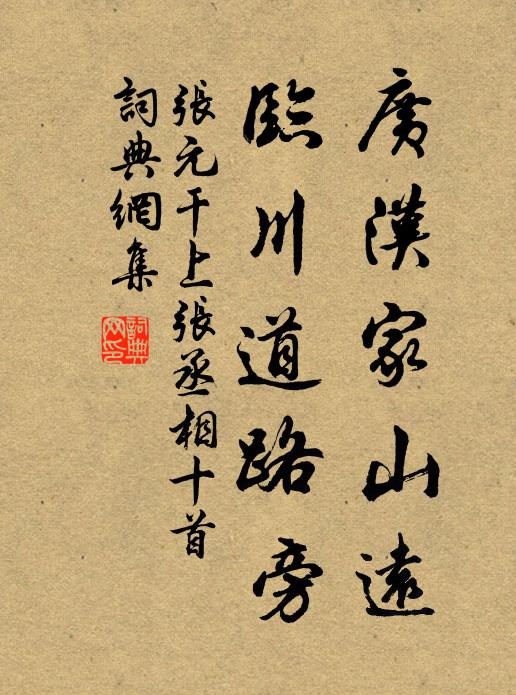 廣漢家山遠
臨川道路旁
張元干上張丞相十首
詞典網集
詞典网印